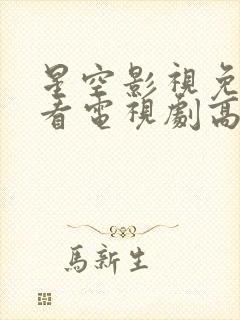 星空影視免
看電視劇高
馬新生